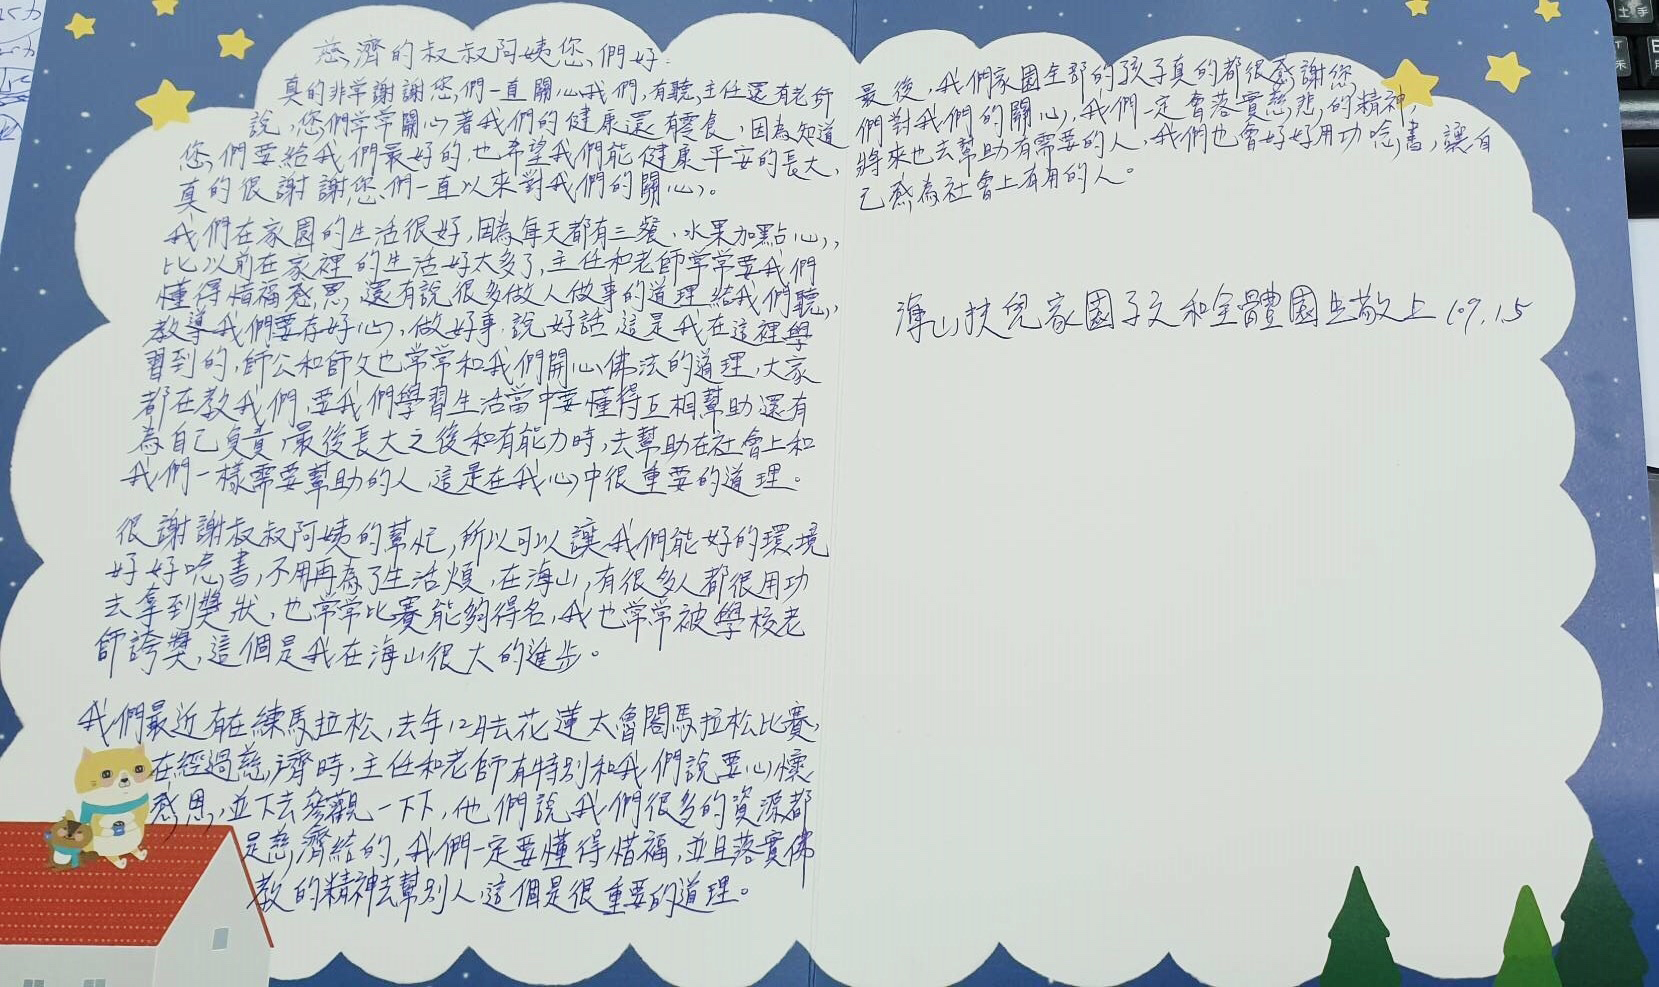 慈濟的叔叔阿姨您們好:
真的非常謝謝您們一直關心我們,有聽主任還有老師
說,您們常常關心著我們的健康還有零食,因為知道
您們要給我們最好的,也希望我們能健康平安的長大,
真的很謝謝您們一直以來對我們的關心。
我們在家園的生活很好,因為每天都有三餐、水果加點心,
比以前在家裡的生活好太多了,主任和老師常常要我們
懂得惜福感恩,還有說很多做人做事的道理給我們聽,
教導我們要存好心,做好事,說好話,這是我在這裡學
習到的,師公和師父也常常和我們開心佛法的道理,大家
都在教我們,要我們學習生活當中要懂得互相幫助還有
為自己負責,最後長大之後和有能力時,去幫助在社會上和
我們一樣需要幫助的人,這是在我心中很重要的道理。
很謝謝叔叔阿姨的幫忙,所以可以讓我們能好的環境
好好唸書,不用再為了生活煩,在海山,有很多人都很用功
去拿到獎狀,也常常比賽能夠得名,我也常常被學校老
師誇獎,這個是我在海山很大的進步。
我們最近有在練馬拉松,去年12月去花蓮太魯閣馬拉松比賽,
在經過慈濟時,主任和老師有特別和我們說要心懷
感恩,並下去參觀一下下,他們說我們很多的資源都
是慈濟給的,我們一定要懂得惜福,並且落實佛
教的精神去幫別人,這個是很重要的道理。
最後,我們家園全部的孩子真的都很感謝您
們對我們的關心,我們一定會落實慈悲的精神,
將來也去幫助有需要的人,我們也會好好用功唸書,讓自
己感為社會上有用的人。
海山扶兒家園子文和全體園生敬上 109.1.5